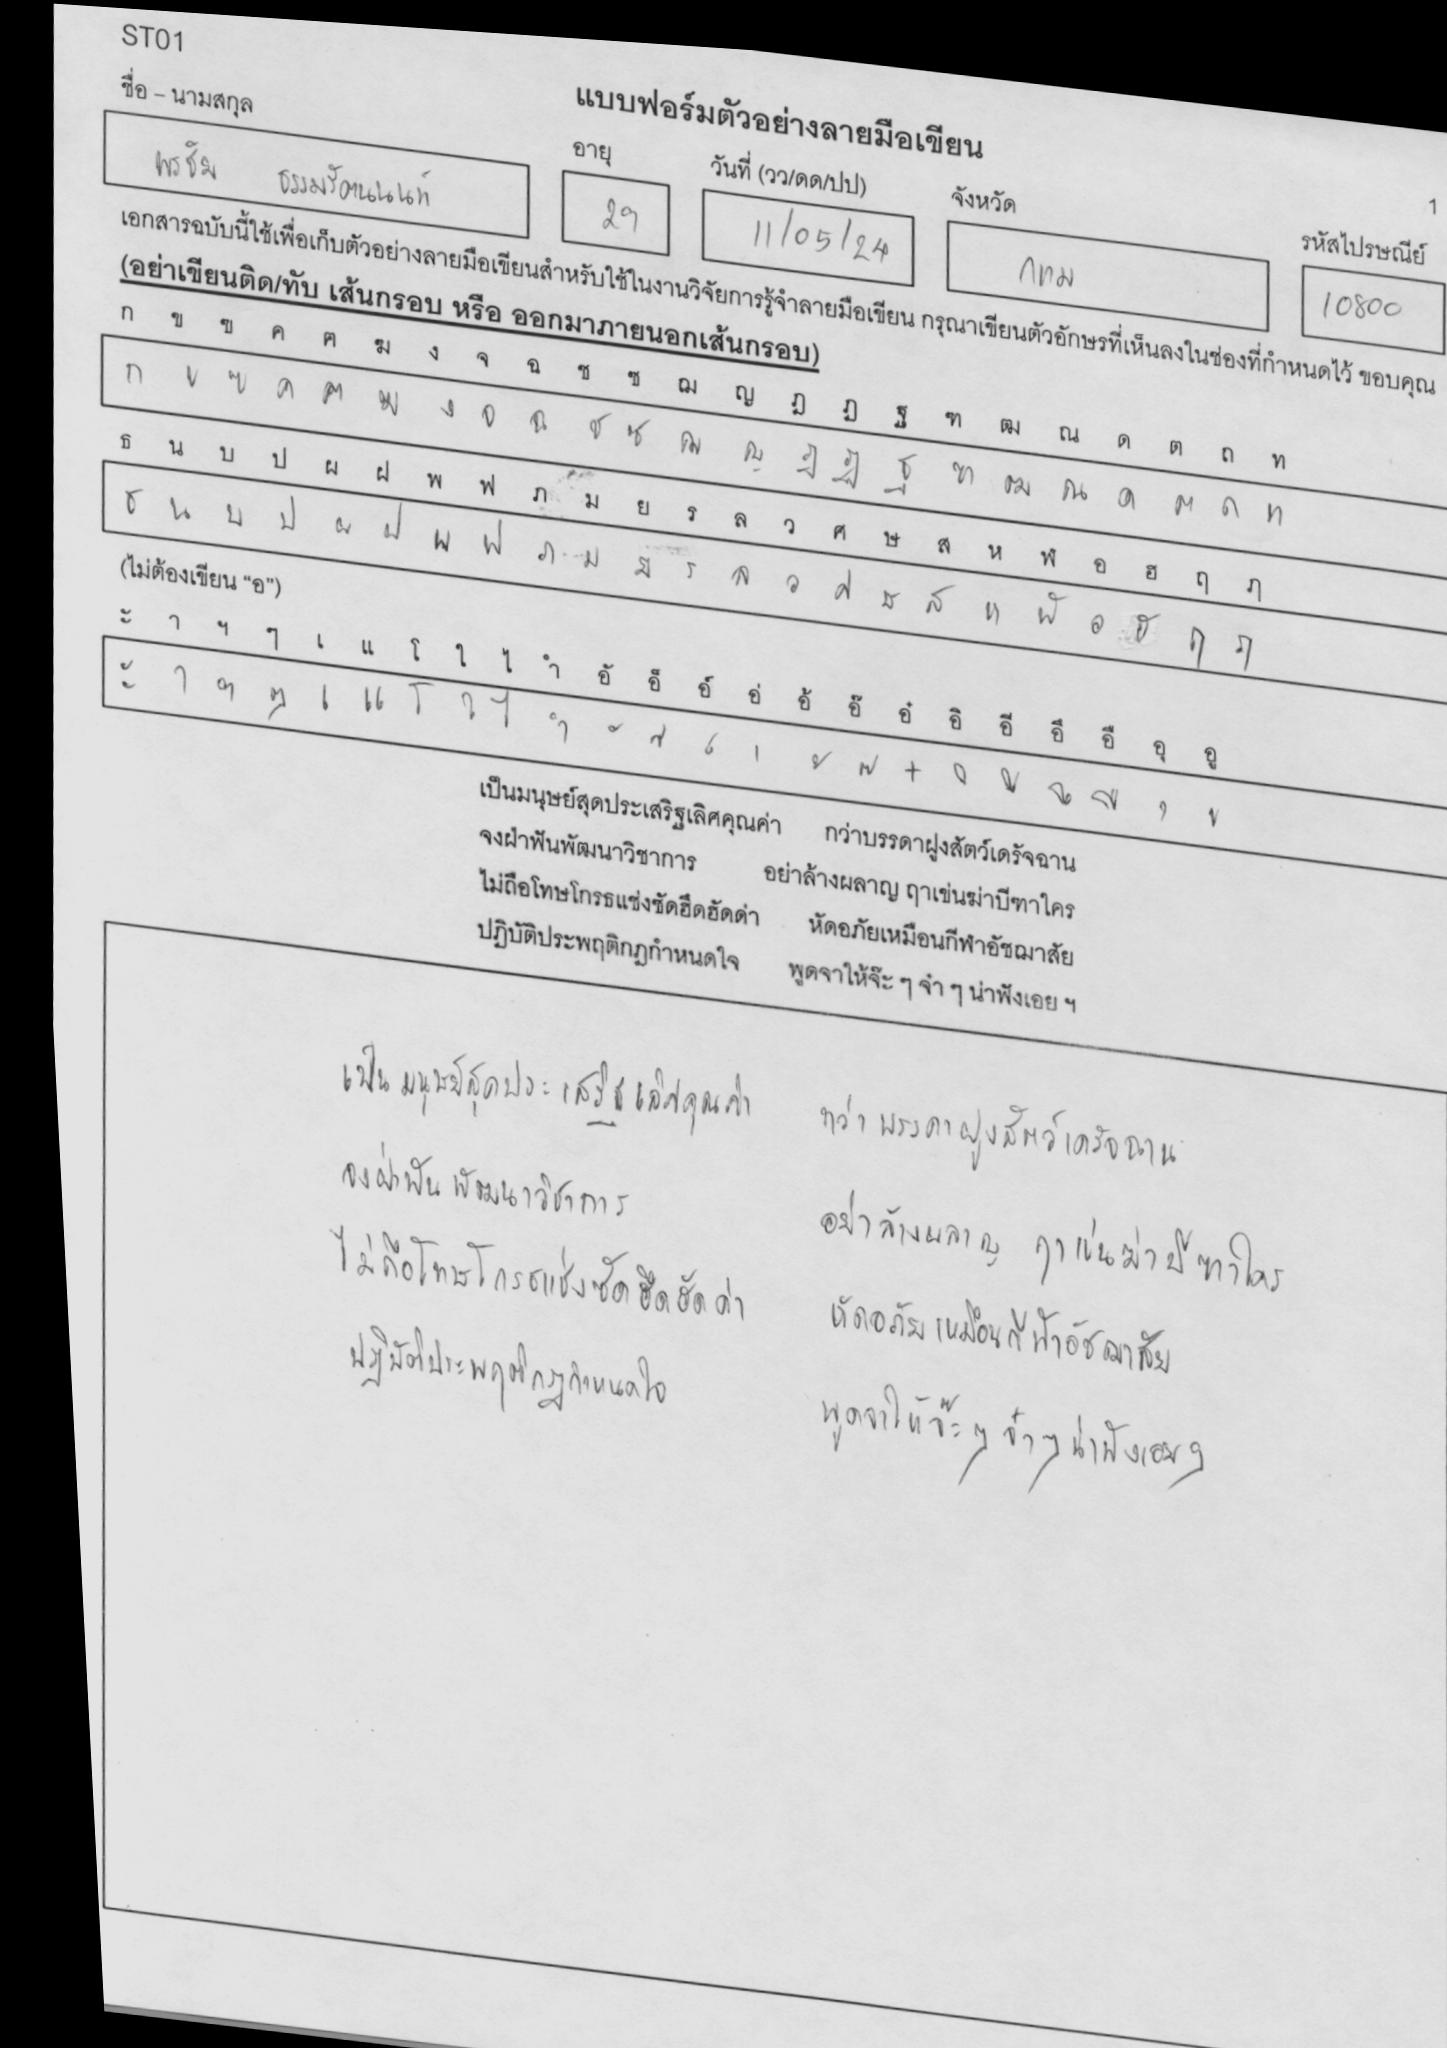 ST01
แบบฟอร์มตัวอย่างลายมือเขียน
1
ชื่อ – นามสกุล อายุ วันที่ (วว/ดด/ปป) จังหวัด รหัสไปรษณีย์
พรชัย ธรรมรัตนนนท์ 29 11/05/24 กทม 10800
เอกสารฉบับนี้ใช้เพื่อเก็บตัวอย่างลายมือเขียนสำหรับใช้ในงานวิจัยการรู้จำลายมือเขียน กรุณาเขียนตัวอักษรที่เห็นลงในช่องที่กำหนดไว้ ขอบคุณ
(อย่าเขียนติด/ทับ เส้นกรอบ หรือ ออกมาภายนอกเส้นกรอบ)
ก ข ฃ ค ฅ ฆ ง จ ฉ ช ซ ฌ ญ ฎ ฏ ฐ ฑ ฒ ณ ด ต ถ ท
ก ข ฃ ค ฅ ฆ ง จ ฉ ช ซ ฌ ญ ฎ ฏ ฐ ฑ ฒ ณ ด ต ถ ท
ธ น บ ป ผ ฝ พ ฟ ภ ม ย ร ล ว ศ ษ ส ห ฬ อ ฮ ฤ ฦ
ธ น บ ป ผ ฝ พ ฟ ภ ม ย ร ล ว ศ ษ ส ห ฬ อ ฮ ฤ ฦ
(ไม่ต้องเขียน “อ”)
ะ า ฯ ๆ เ แ โ ใ ไ ำ อั อ็ อ์ อ่ อ้ อ๊ อ๋ อิ อี อึ อื อุ อู
ะ า ฯ ๆ เ แ โ ใ ไ ำ ั ็ ์ ่ ้ ๊ ๋ ิ ี ึ ื ุ ู
เป็นมนุษย์สุดประเสริฐเลิศคุณค่า กว่าบรรดาฝูงสัตว์เดรัจฉาน
จงฝ่าฟันพัฒนาวิชาการ อย่าล้างผลาญ ฤาเข่นฆ่าบีฑาใคร
ไม่ถือโทษโกรธแช่งซัดฮึดฮัดด่า หัดอภัยเหมือนกีฬาอัชฌาสัย
ปฏิบัติประพฤติกฎกำหนดใจ พูดจาให้จ๊ะ ๆ จ๋า ๆ น่าฟังเอย ฯ
เป็นมนุษย์สุดประเสริฐเลิศคุณค่า กว่าบรรดาฝูงสัตว์เดรัจฉาน
จงฝ่าฟันพัฒนาวิชาการ อย่าล้างผลาญ ฤาเข่นฆ่าบีฑาใคร
ไม่ถือโทษโกรธแช่งซัดฮึดฮัดด่า หัดอภัยเหมือนกีฬาอัชฌาสัย
ปฏิบัติประพฤติกฎกำหนดใจ พูดจาให้จ๊ะ ๆ จ๋า ๆ น่าฟังเอย ฯ